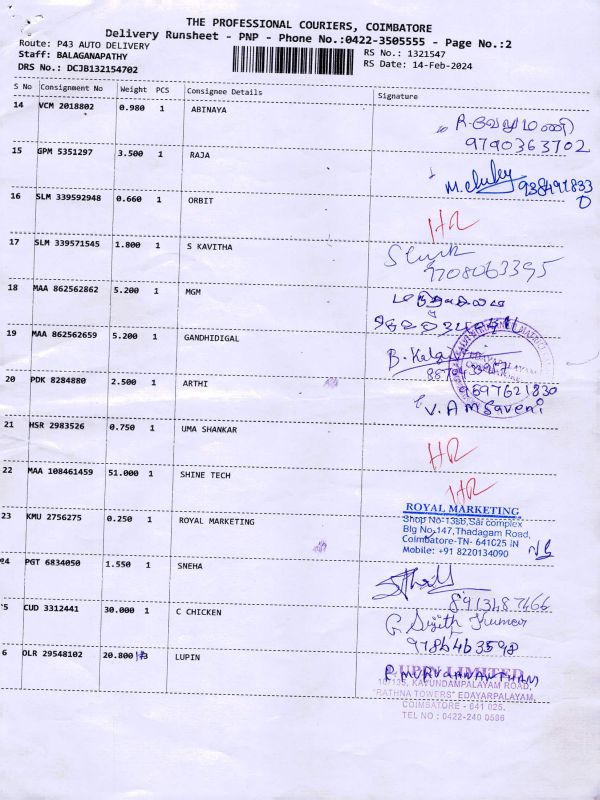 THE PROFESSIONAL COURIERS, COIMBATORE
Delivery Runsheet - PNP - Phone No.:0422-3505555 - Page No.:2
Route: P43 AUTO DELIVERY
RS No.: 1321547
Staff: BALAGANAPATHY
RS Date: 14-Feb-2024
DRS No.: DCJB132154702
S No Consignment No Weight PCS Consignee Details Signature
14 VCM 2018802 0.980 1 ABINAYA
9790363702
15 GPM 5351297 3.500 1 RAJA
16 SLM 339592948 0.660 1 ORBIT HR
17 SLM 339571545 1.800 1 S KAVITHA
9708063395
18 MAA 862562862 5.200 1 MGM
19 MAA 862562659 5.200 1 GANDHIDIGAL
20 PDK 8284880 2.500 1 ARTHI
9697621830
V. A M Saveni
21 HSR 2983526 0.750 1 UMA SHANKAR HR
22 MAA 108461459 51.000 1 SHINE TECH HR
23 KMU 2756275 0.250 1 ROYAL MARKETING
ROYAL MARKETING
Shop No-138b,Sai complex
Blg No-147,Thadagam Road,
Coimbatore-TN- 641025 IN
Mobile: +91 8220134090
24 PGT 6834050 1.550 1 SNEHA
8913487466
5 CUD 3312441 30.000 1 C CHICKEN
G Sujith Kumar
9786463598
6 DLR 29548102 20.800 3 LUPIN
LUPIN LIMITED
KAVUNDAMPALAYAM ROAD,
"RATHNA TOWERS" EDAYARPALAYAM,
COIMBATORE - 641 025.
TEL NO : 0422-240 0586